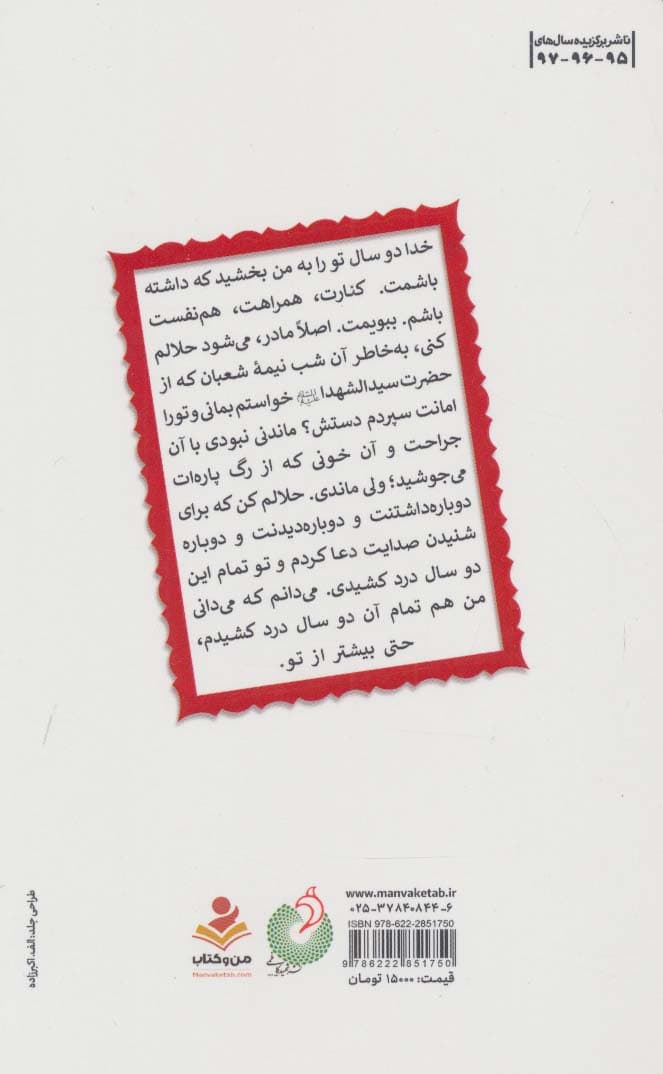 ناشر برگزیده سال‌های
۹۵-۹۶-۹۷
خدا دو سال تو را به من بخشید که داشته
باشمت. کنارت، همراهت، هم‌نفست
باشم. ببویمت. اصلاً مادر، می‌شود حلالم
کنی، به‌خاطر آن شب نیمهٔ شعبان که از
حضرت سیدالشهدا خواستم بمانی و تو را
امانت سپردم دستش؟ ماندنی نبودی با آن
جراحت و آن خونی که از رگ پاره‌ات
می‌جوشید؛ ولی ماندی. حلالم کن که برای
دوباره‌داشتنت و دوباره‌دیدنت و دوباره
شنیدن صدایت دعا کردم و تو تمام این
دو سال درد کشیدی. می‌دانم که می‌دانی
من هم تمام آن دو سال درد کشیدم،
حتی بیشتر از تو.
طراحی جلد: الف. اکبرزاده
من و کتاب
Manvaketab.com
نشر شهید کاظمی
www.manvaketab.ir
۰۲۵-۳۷۸۴۰۸۴۴-۶
ISBN 978-622-2851750
9 786222 851750
قیمت: ۱۵۰۰۰ تومان